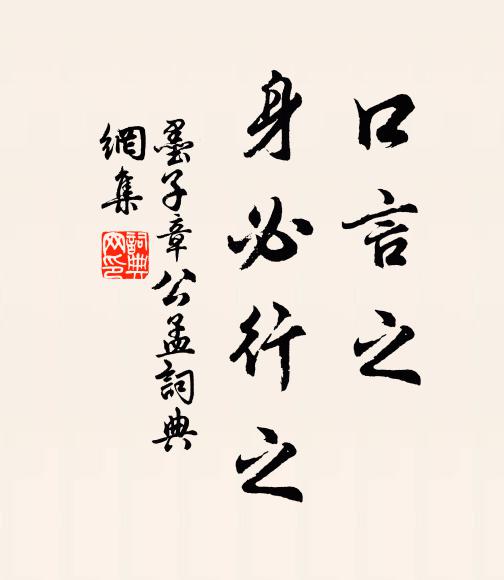 口言之
身必行之
墨子章公孟詞典
網集
詞典網印